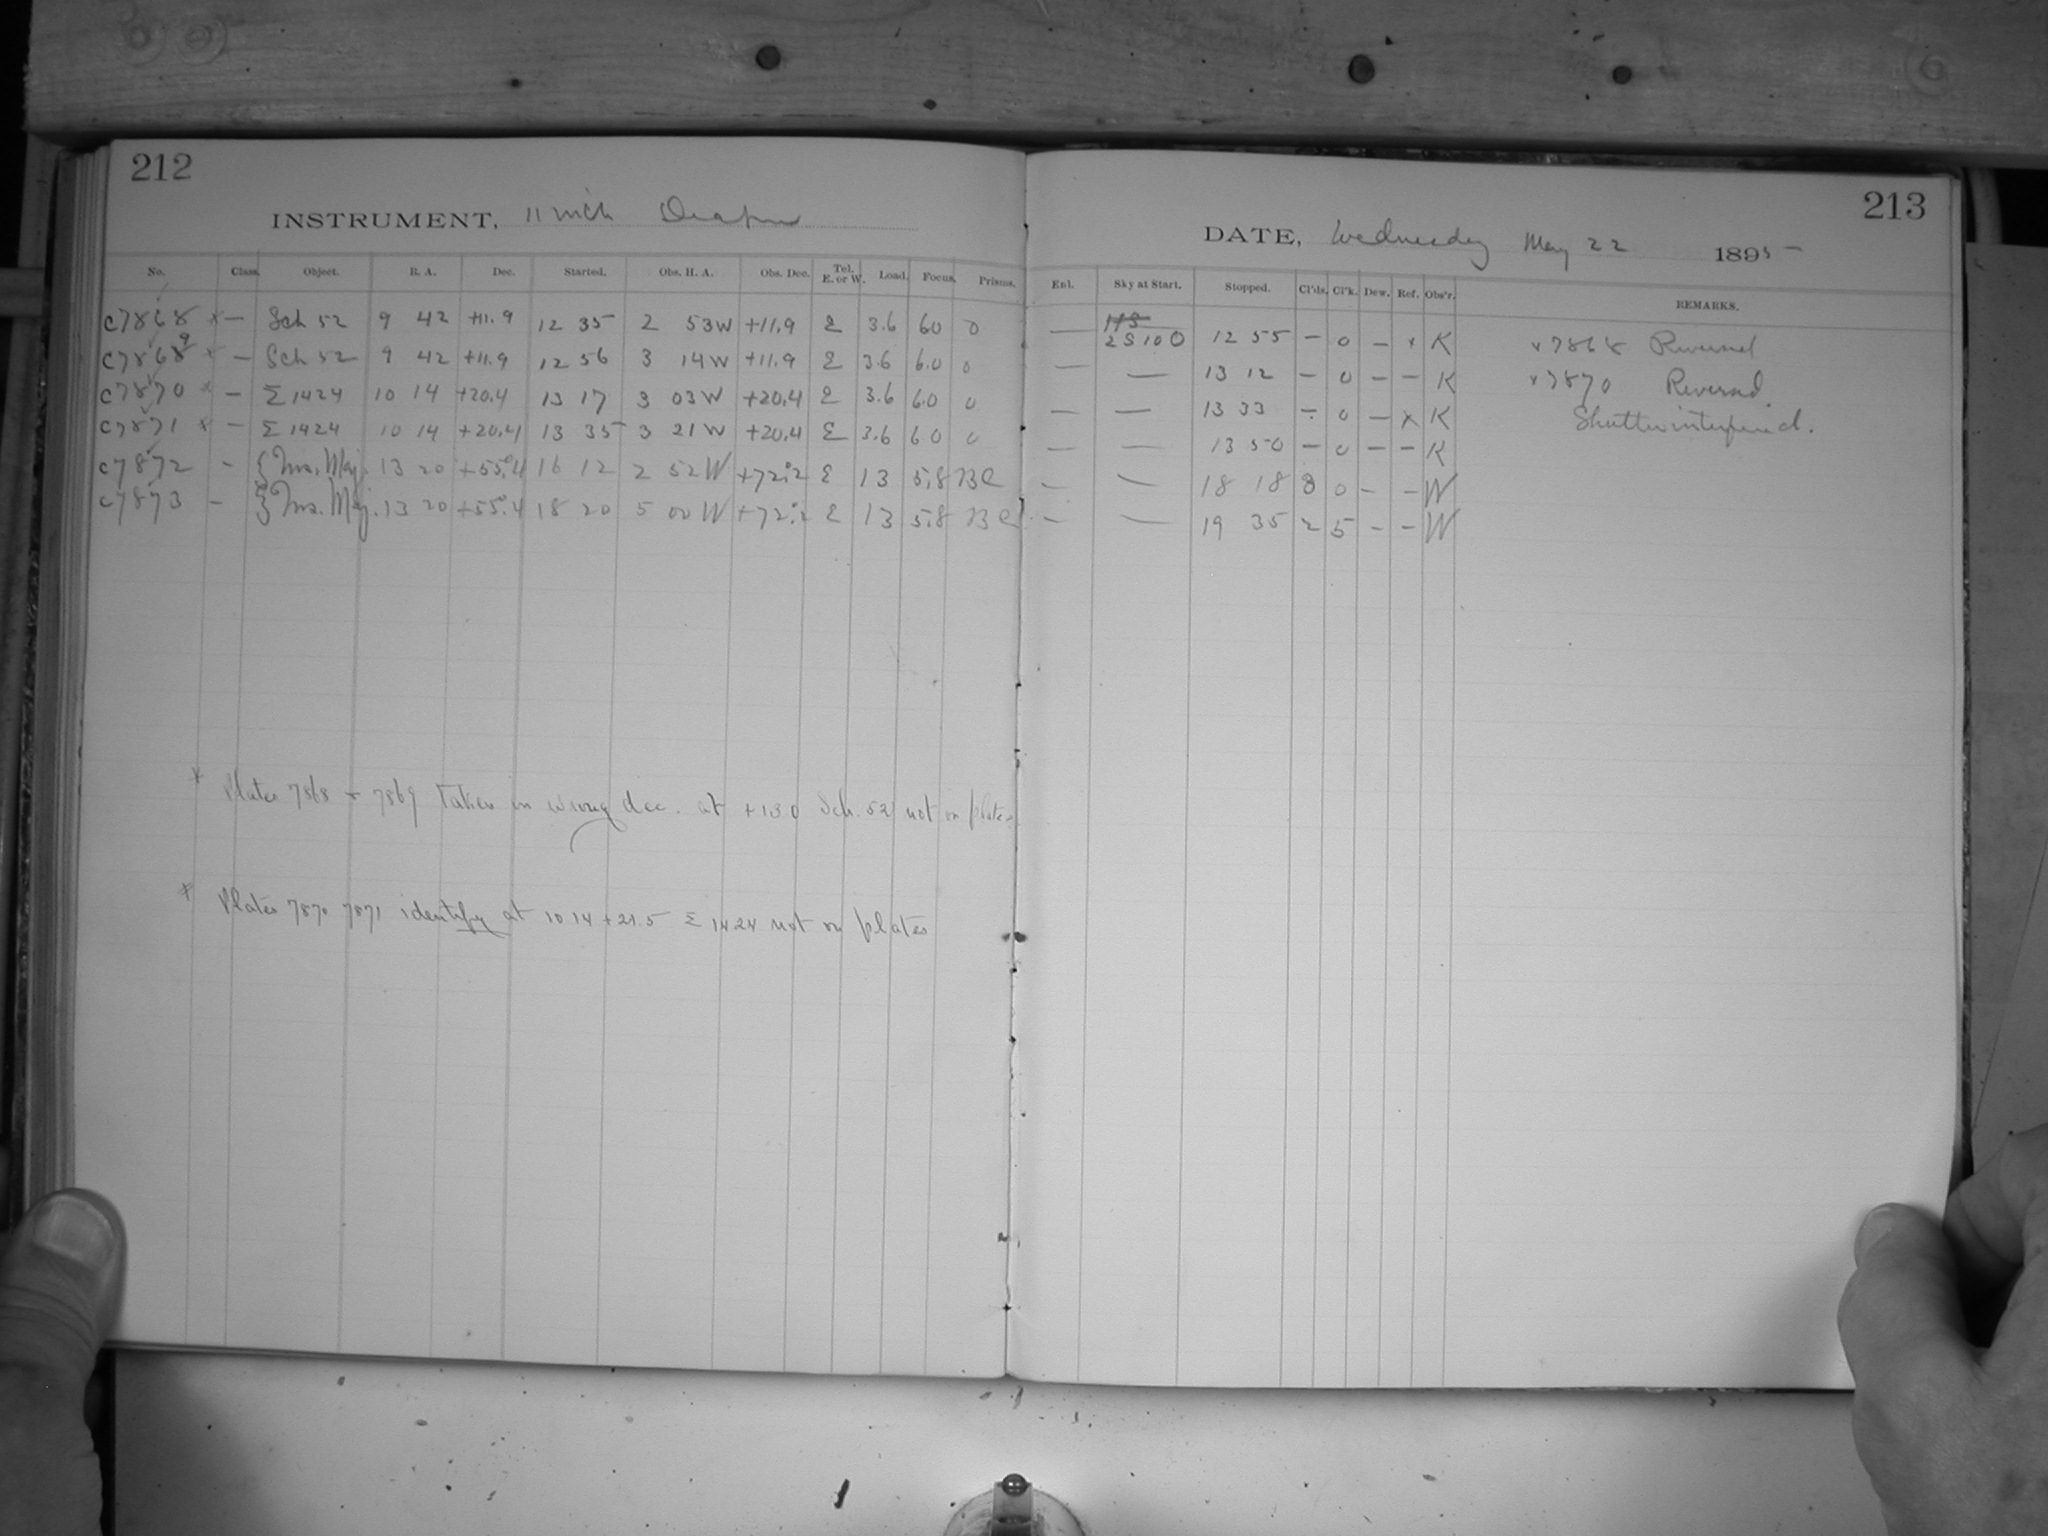 212
INSTRUMENT, 11 inch Draper
No. Class. Object. R. A. Dec. Started. Obs. H. A. Obs. Dec. Tel. E. or W. Load. Focus. Prisms.
c7868 x — Sch 52 9 42 +11.9 12 35 2 53W +11.9 E 3.6 60 0
c7869 x — Sch 52 9 42 +11.9 12 56 3 14W +11.9 E 3.6 6.0 0
c7870 x — Σ 1424 10 14 +20.4 13 17 3 03W +20.4 E 3.6 6.0 0
c7871 x — Σ 1424 10 14 +20.4 13 35 3 21W +20.4 E 3.6 60 0
c7872 - { Urs. Maj. 13 20 +55°.4 16 12 2 52W +72°.2 E 13 5.8 BC
c7873 - } Urs. Maj. 13 20 +55°.4 18 20 5 00W +72°.2 E 13 5.8 BC
* Plates 7868 + 7869 Taken in wrong dec. at +13.0 Sch. 52 not on plates
* Plates 7870 7871 identify at 10 14 +21.5 Σ 1424 not on plates
213
DATE, Wednesday May 22 1895 -
Enl. Sky at Start. Stopped. Cl'ds. Cl'k. Dew. Ref. Obs'r. REMARKS.
— 2S100 12 55 — 0 — x K x7868 Reversed
— — 13 12 — 0 — — K x7870 Reversed
— — 13 33 — 0 — x K Shutter interfered.
— — 13 50 — 0 — — K
— — 18 18 8 0 — — W
— — 19 35 2 5 — — W